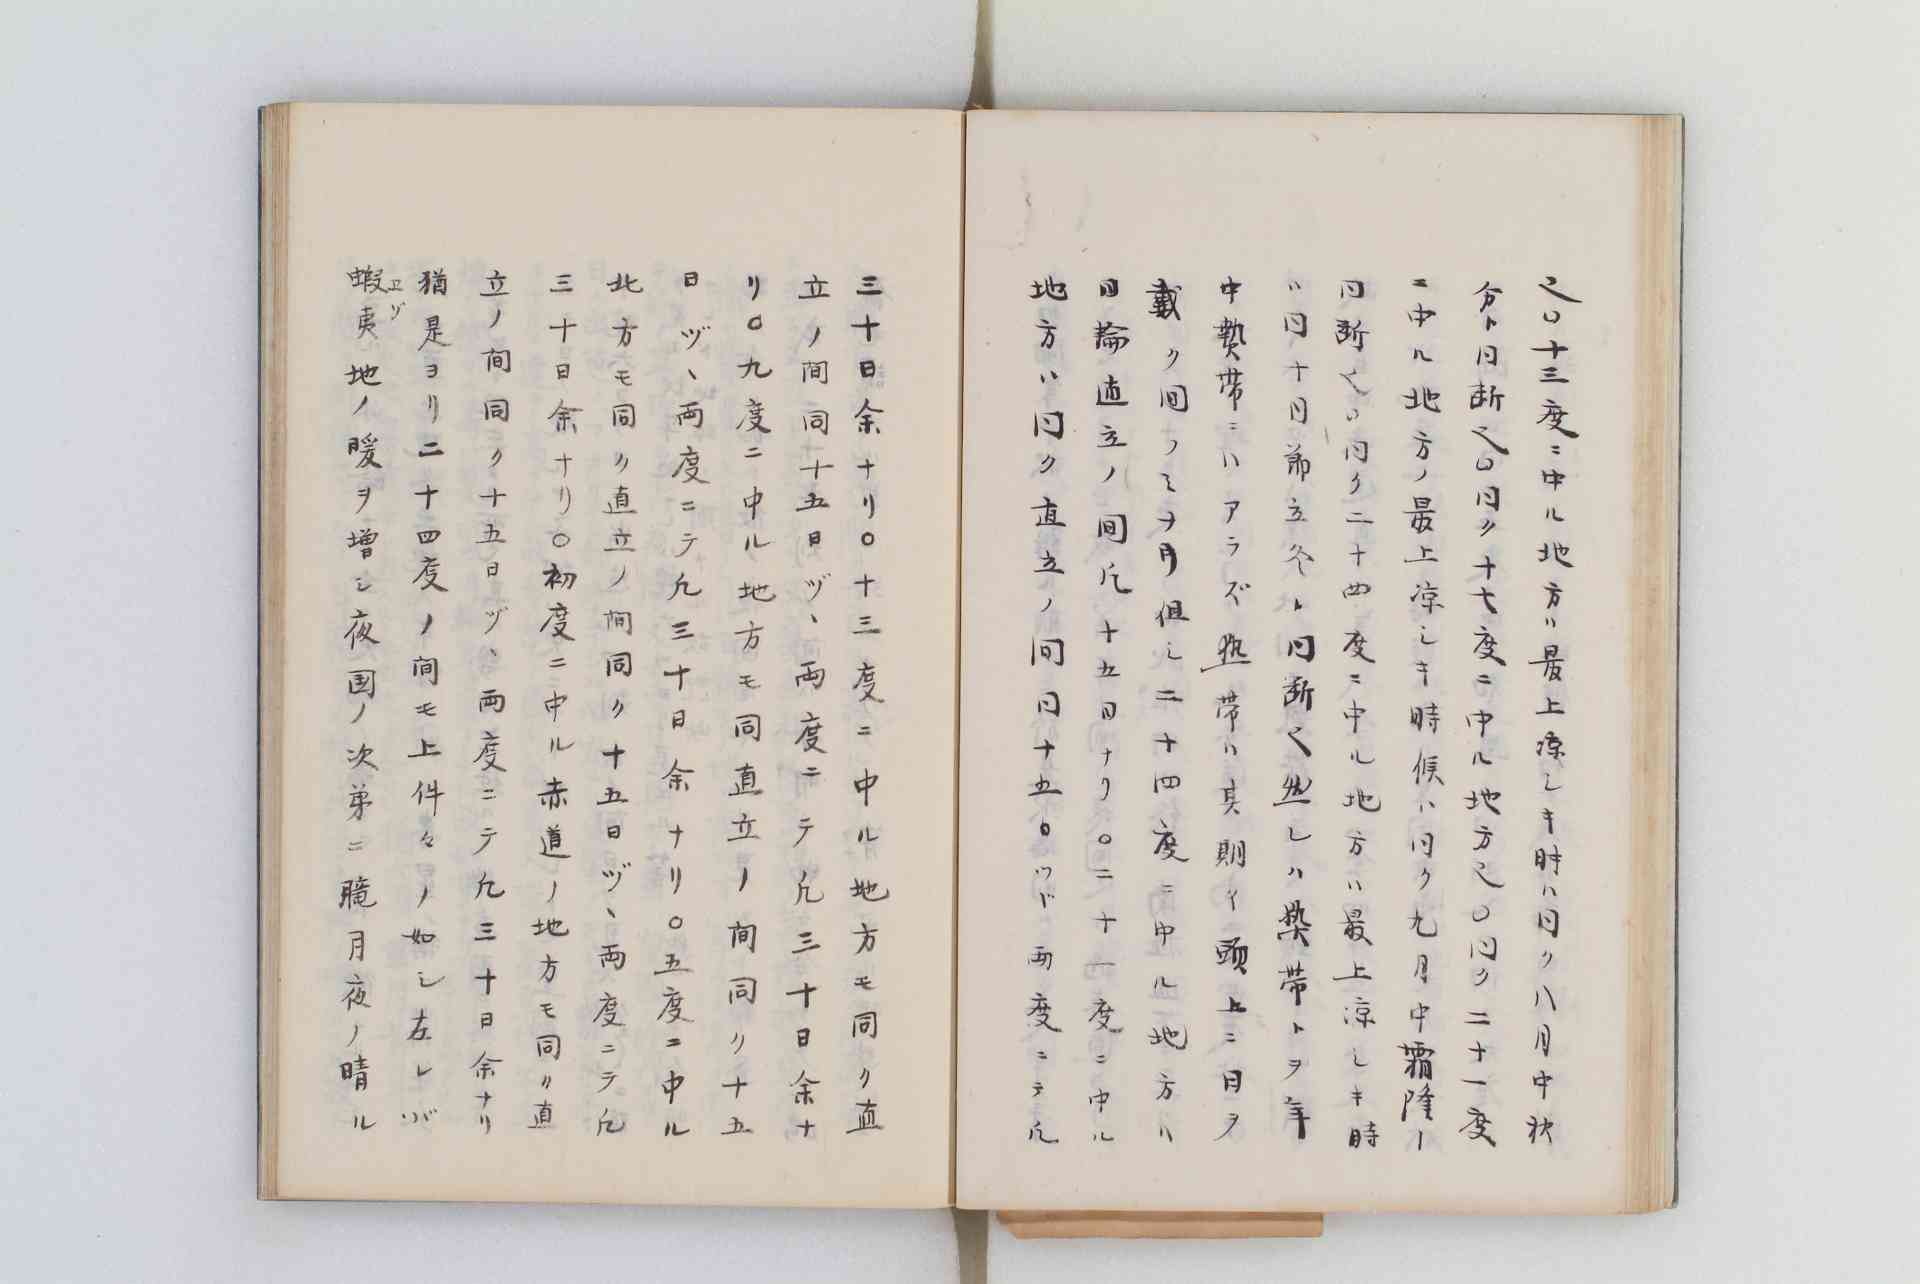 之〇十三度ニ中ル地方ハ最上凉シキ時ハ同ク八月中秋
分ト同断之〇同ク十七度ニ中ル地方之〇同ク二十一度
ニ中ル地方ノ最上凉シキ時候ハ同ク九月中霜降ノ
同断之〇同ク二十四度ニ中ル地方ハ最上凉シキ時
ハ同十月節立冬ト同断之然レハ熱帯トヲ年
中熱帯ニハアラズ熱帯ハ其則イ頭上ニ日ヲ
戴ク間ノミヲ月但シ二十四度ニ中ル地方ハ
日輪直立ノ間凡十五日ナリ〇二十一度ニ中ル
地方ハ同ク直立ノ間同十五〇ツド両度ニテ凡
三十日余ナリ〇十三度ニ中ル地方モ同ク直
立ノ間同十五日ヅヽ両度ニテ凡三十日余ナ
リ〇九度ニ中ル地方モ同直立ノ間同ク十五
日ヅヽ両度ニテ凡三十日余ナリ〇五度ニ中ル
北方モ同ク直立ノ間同ク十五日ヅヽ両度ニテ凡
三十日余ナリ〇初度ニ中ル赤道ノ地方モ同ク直
立ノ間同ク十五日ヅヽ両度ニテ凡三十日余ナリ
猶是ヨリ二十四度ノ間モ上件々ノ如シ左レバ
蝦夷エゾ地ノ暖ヲ増シ夜国ノ次第ニ朧月夜ノ晴ル